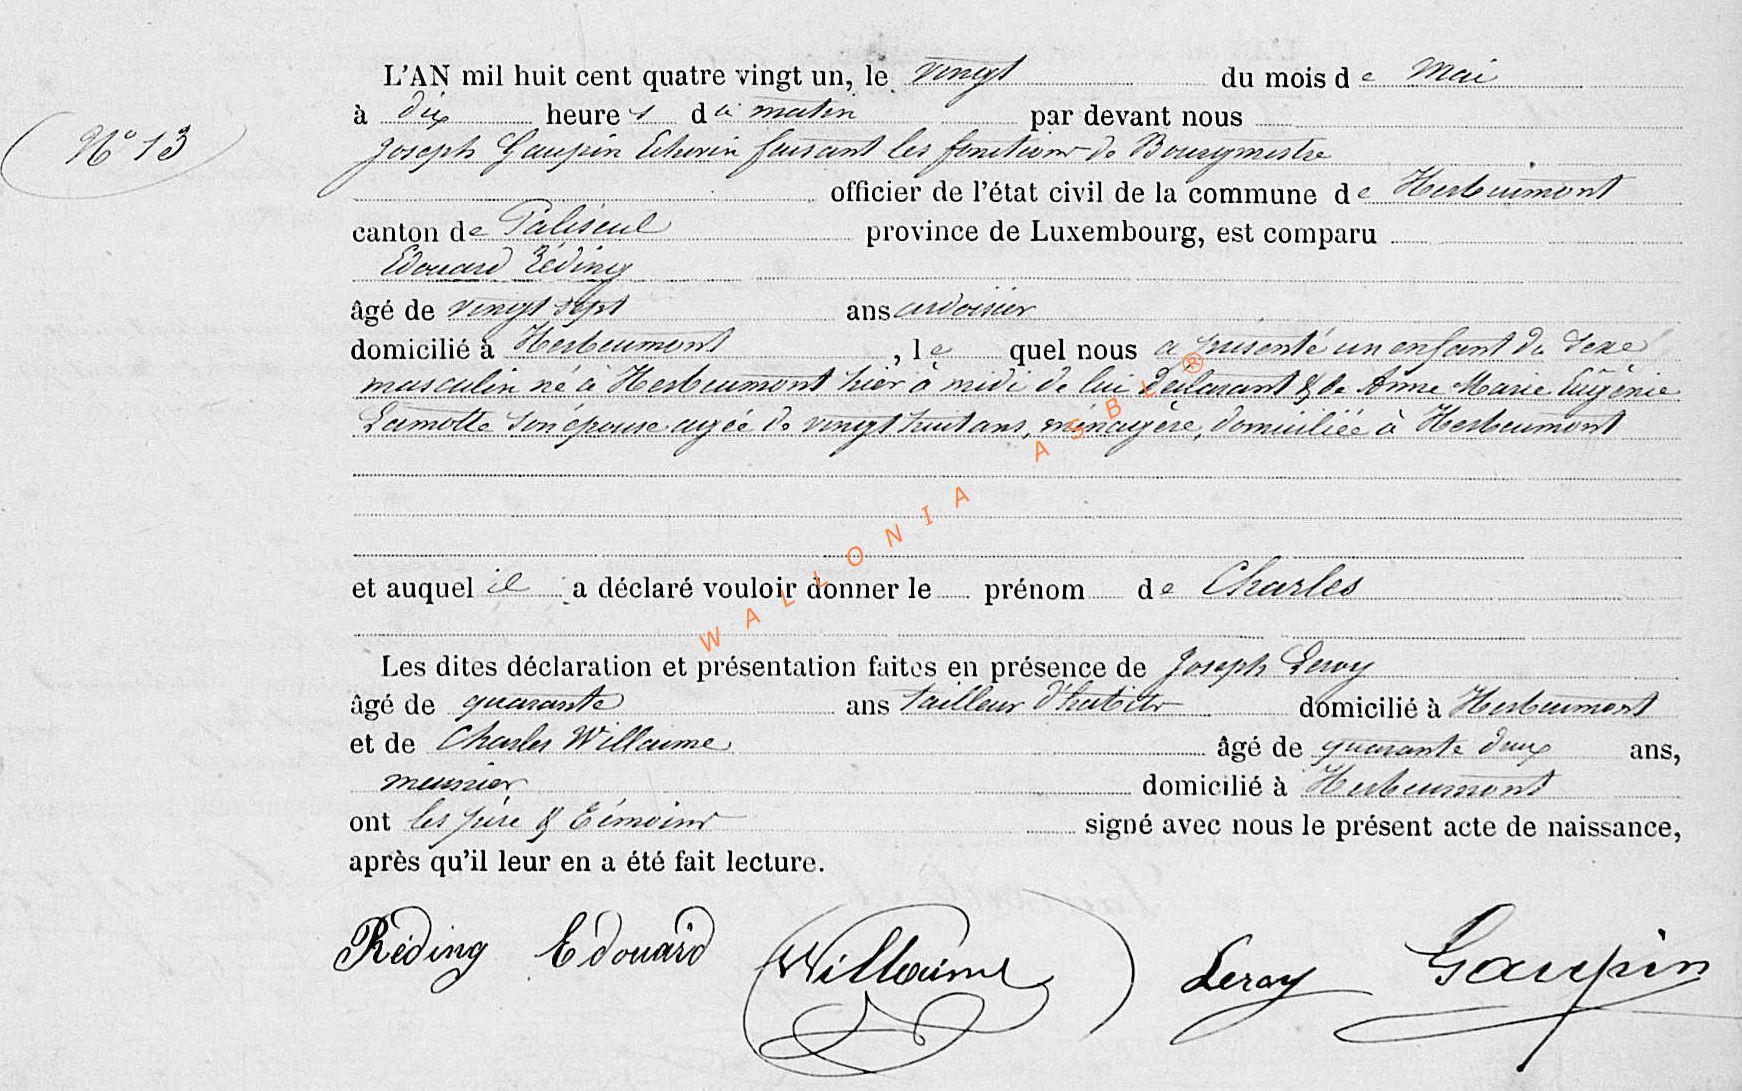 L'AN mil huit cent quatre vingt un, le vingt du mois de Mai
à dix heures du matin par devant nous
N° 13
Joseph Gaupin Echevin faisant les fonctions de Bourgmestre
officier de l'état civil de la commune de Herbeumont
canton de Paliseul province de Luxembourg, est comparu
Edouard Réding
âgé de vingt sept ans ardoisier
domicilié à Herbeumont, lequel nous a présenté un enfant du sexe
masculin né à Herbeumont hier à midi de lui déclarant & de Anne Marie Eugénie
Lamotte son épouse agée de vingt huit ans, ménagère, domiciliée à Herbeumont
et auquel il a déclaré vouloir donner le prénom de Charles
Les dites déclaration et présentation faites en présence de Joseph Leroy
âgé de quarante ans tailleur d'habits domicilié à Herbeumont
et de Charles Willaime âgé de quarante deux ans,
meunier domicilié à Herbeumont
ont les père & témoins signé avec nous le présent acte de naissance,
après qu'il leur en a été fait lecture.
Réding Edouard Willaime Leroy Gaupin
WALLONIA ASBL ®